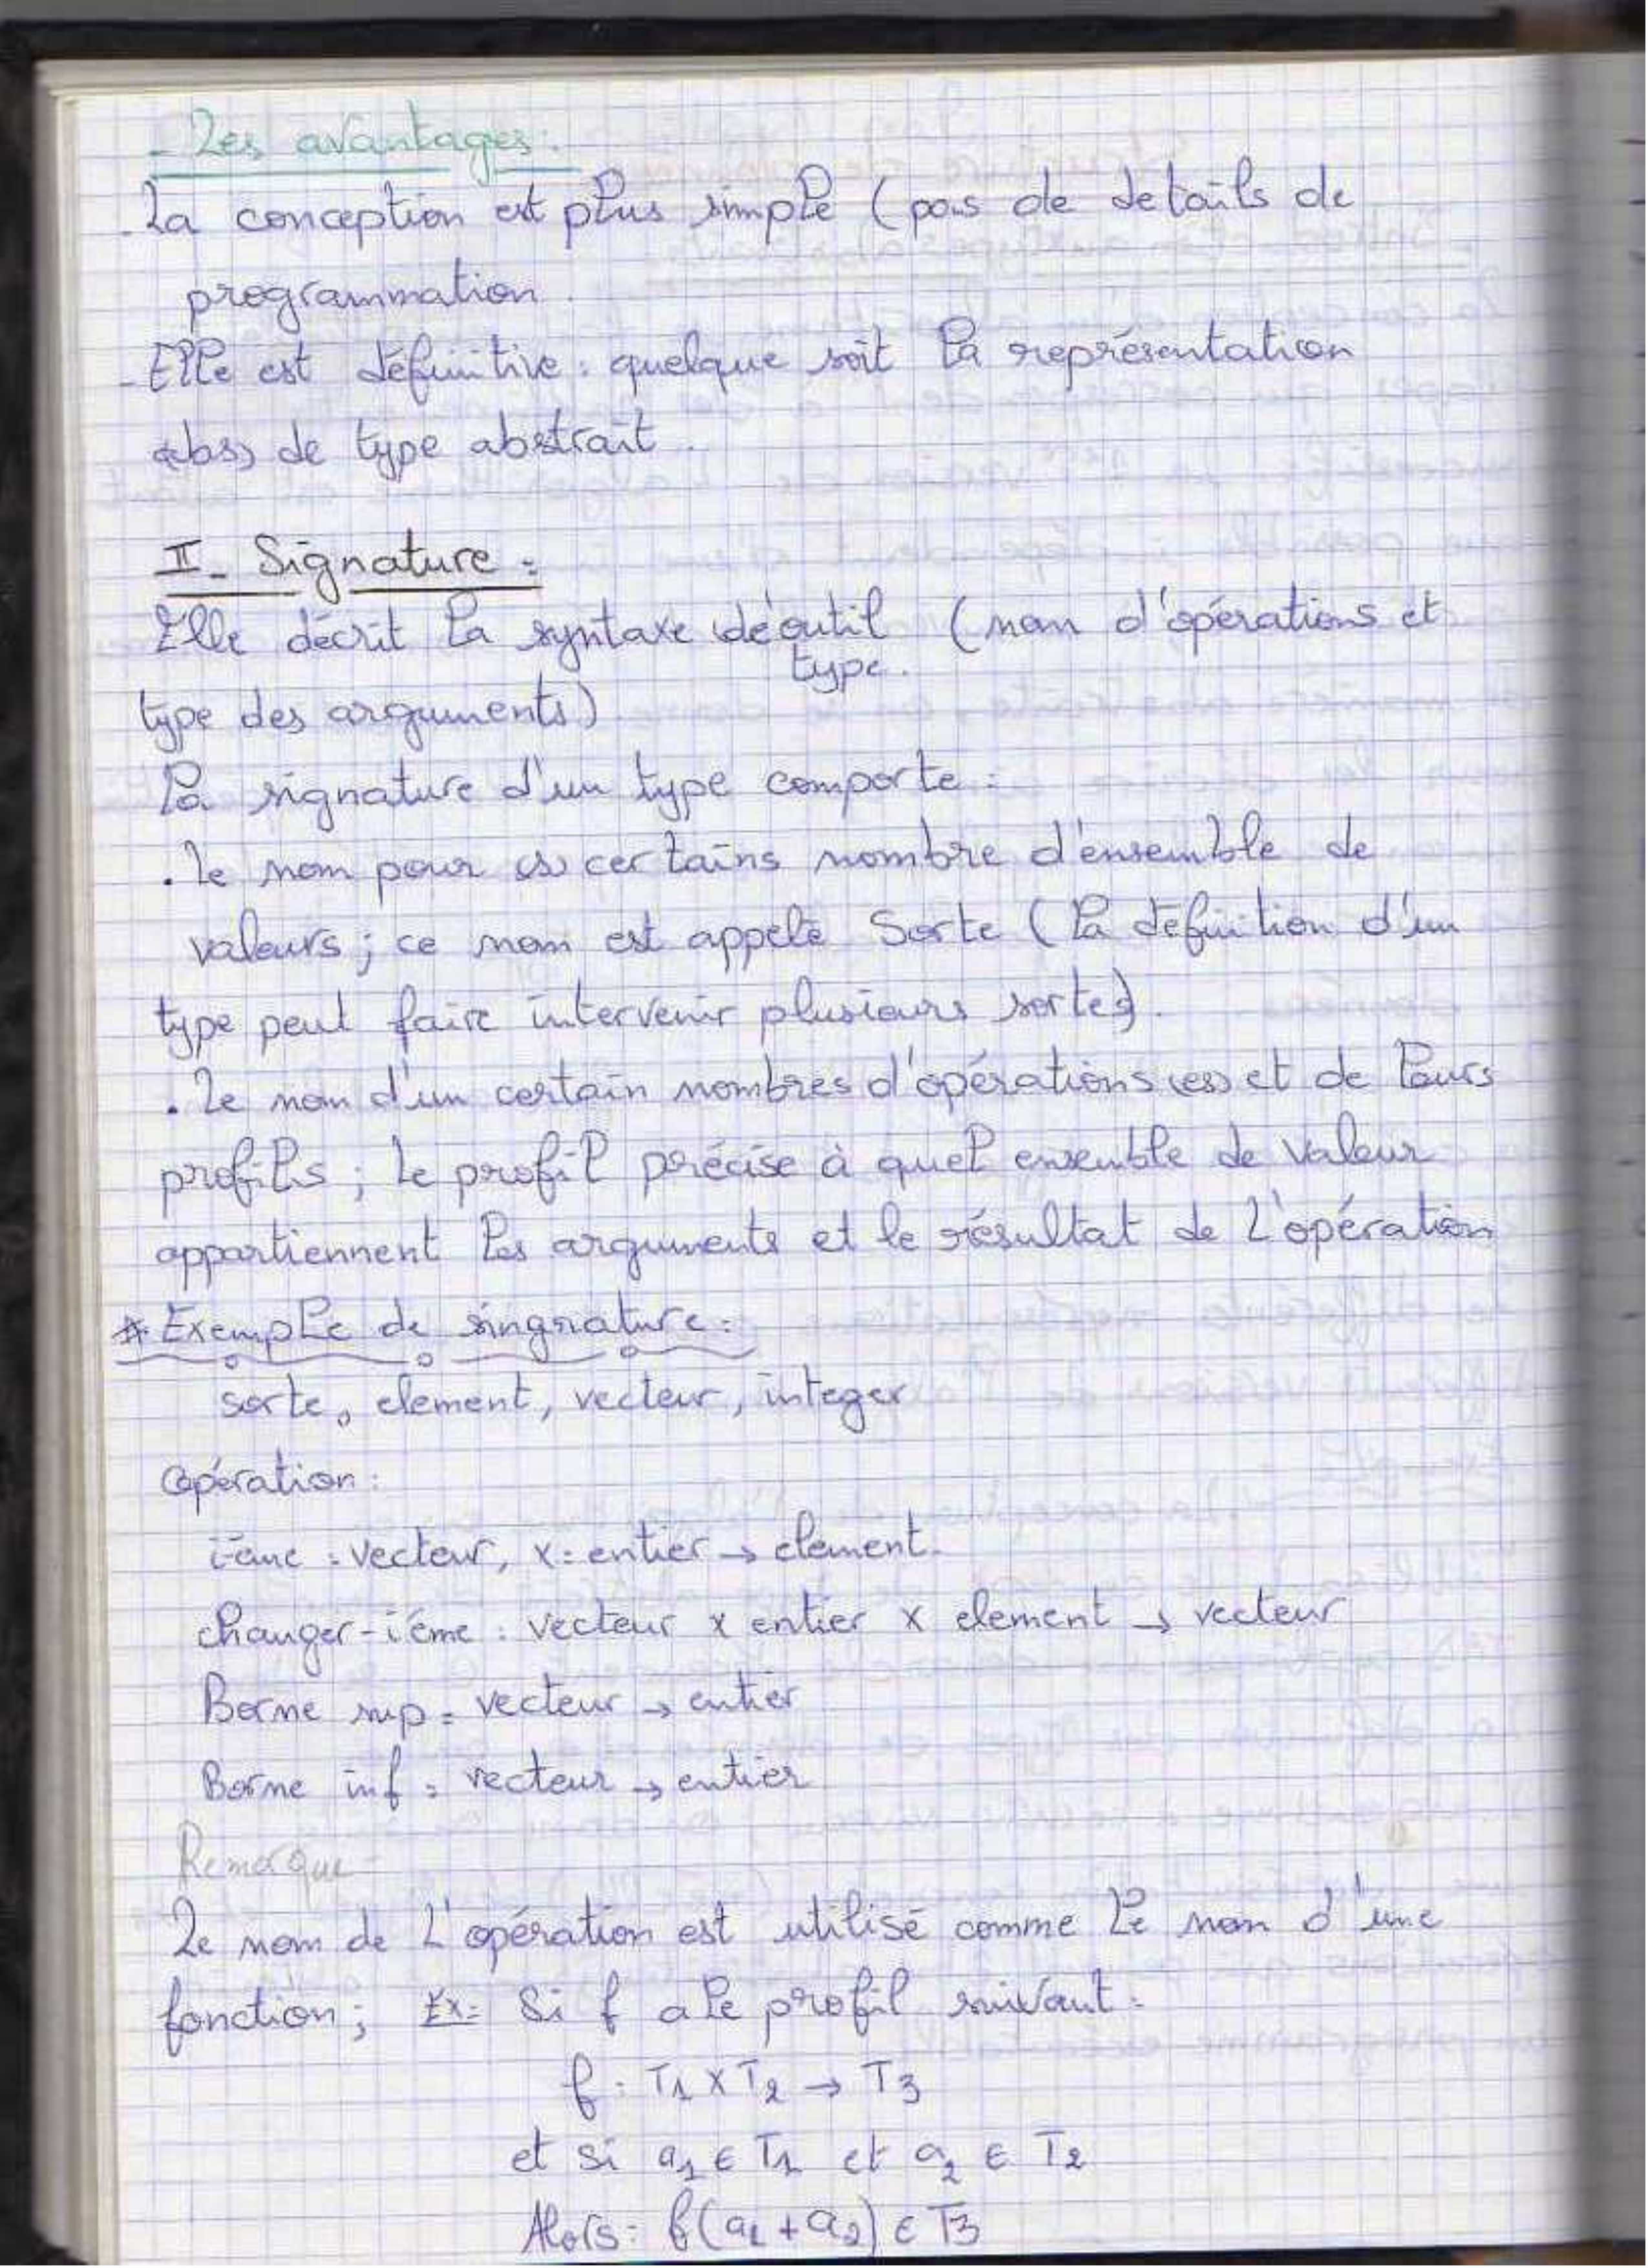 - Les avantages:
- La conception est plus simple (pas de details de
programmation.
- Elle est définitive: quelque soit la représentation
de type abstrait.
II- Signature:
Elle décrit la syntaxe de outil (nom d'opérations et
type.
type des arguments)
La signature d'un type comporte:
. Le nom pour certains nombre d'ensemble de
valeurs; ce nom est appelé Sorte (la définition d'un
type peut faire intervenir plusieurs sortes).
. Le nom d'un certain nombres d'opérations (es) et de leurs
profils; le profil précise à quel ensemble de valeur
appartiennent les arguments et le résultat de l'opération
* Exemple de singnature:
sorte, element, vecteur, integer
opération:
ième: vecteur, x: entier → element.
changer-ième: vecteur x entier x element → vecteur
Borne sup: vecteur → entier
Borne inf: vecteur → entier
Remarque
Le nom de l'opération est utilisé comme le nom d'une
fonction; Ex: Si f a le profil suivant:
f: T1 x T2 → T3
et si a1 ∈ T1 et a2 ∈ T2
Alors: f(a1 + a2) ∈ T3